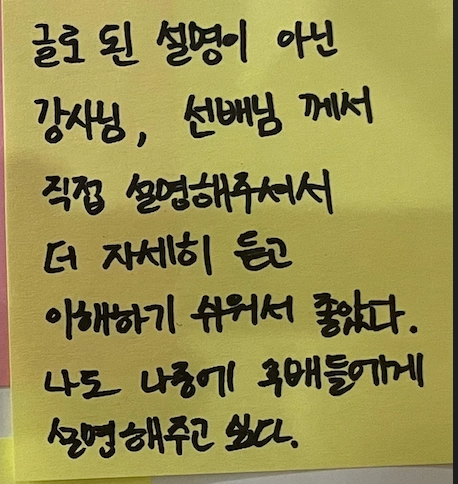 글로 된 설명이 아닌
강사님, 선배님 께서
직접 설명해주셔서
더 자세히 듣고
이해하기 쉬워서 좋았다.
나도 나중에 후배들에게
설명해주고 싶다.